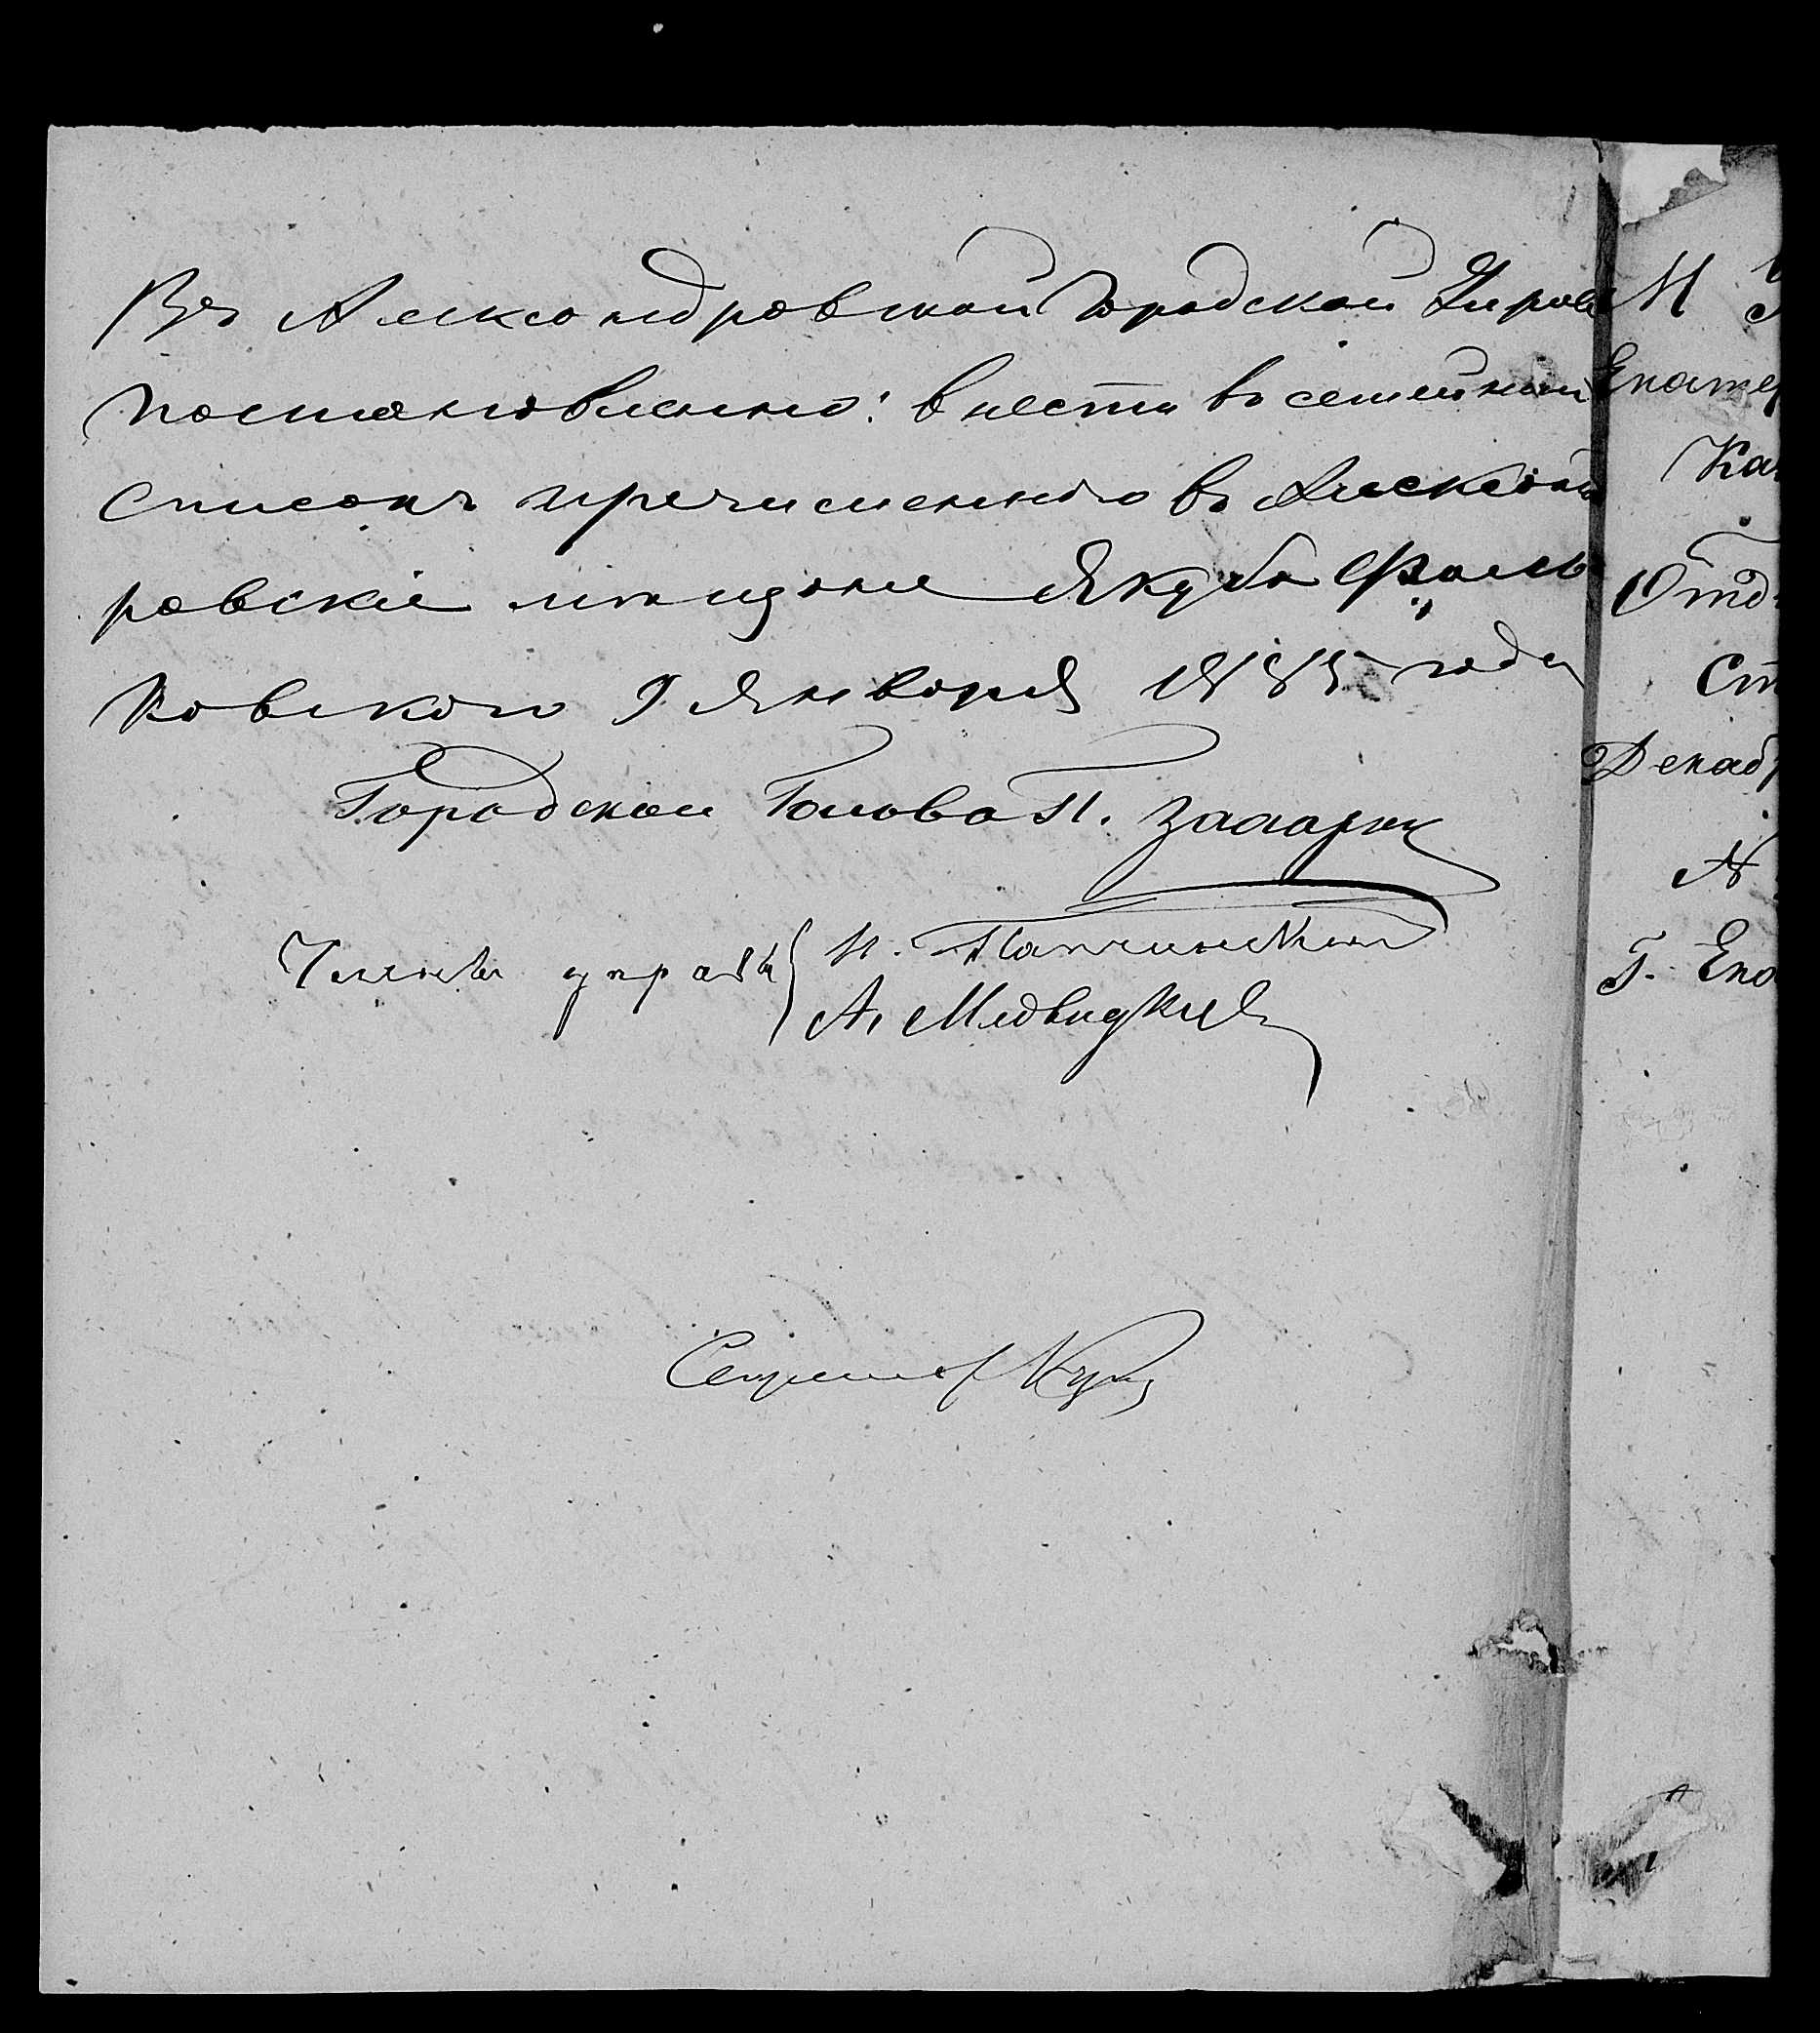 Въ Александровской Городской Управѣ
постановленно: внести въ семейный
списокъ пречисленного въ Александ
ровскіе мѣщане Якуба Фаль
ковского 9 Января 1885 года
Городской Голова П. Захарин
Члены управы
А. Медведкидъ
Секретарь
М
Екатер
Каз
Отд
Ст
Декаб
№
Г. Ека